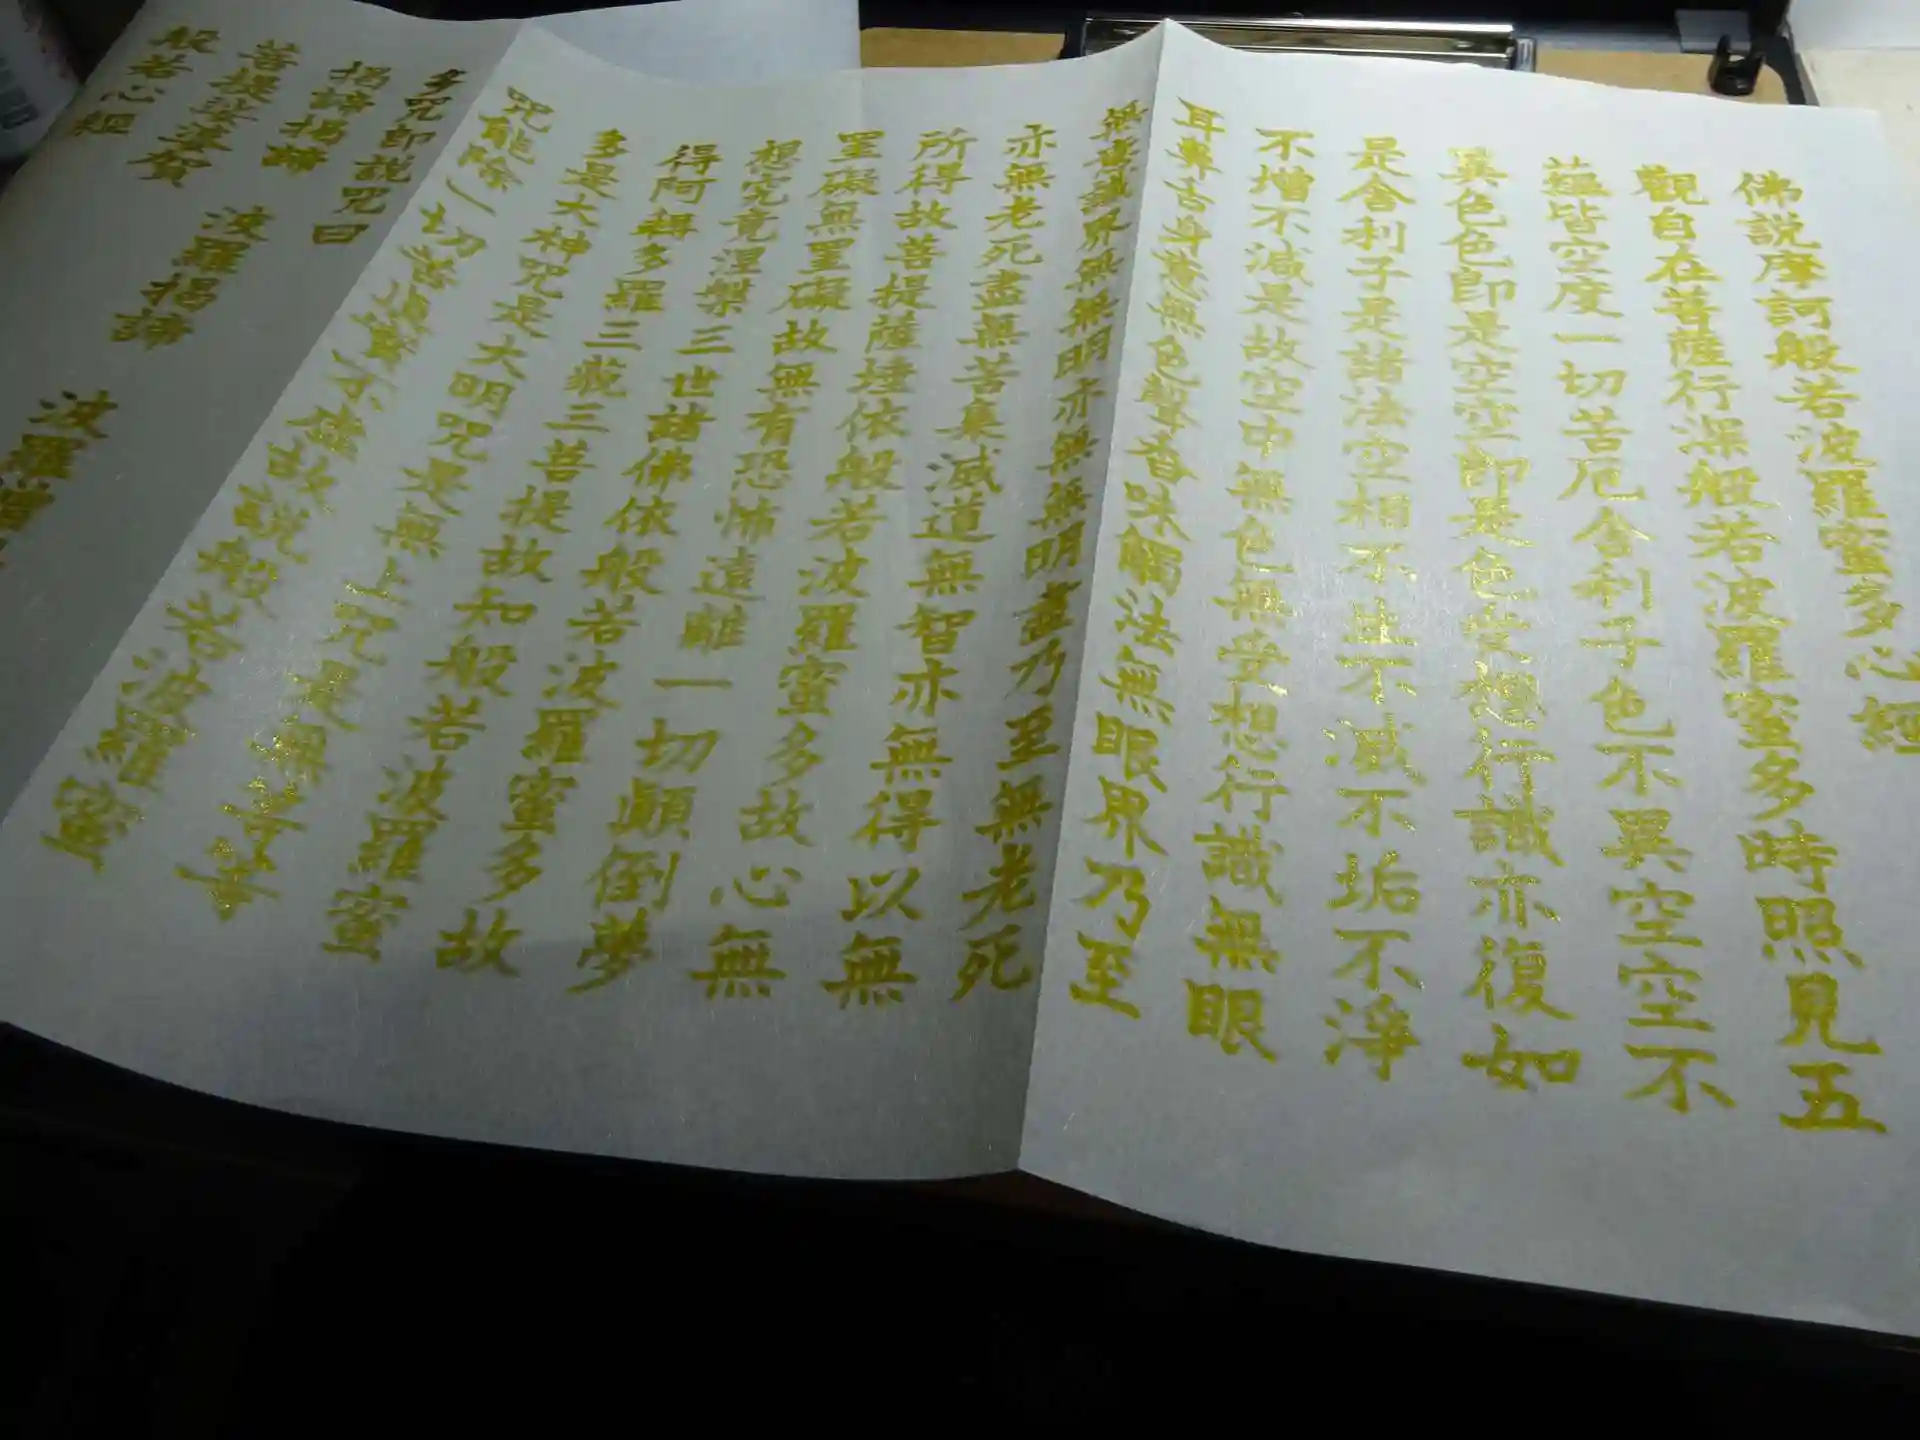 佛説摩訶般若波羅蜜多心經
觀自在菩薩行深般若波羅蜜多時照見五
蘊皆空度一切苦厄舍利子色不異空空不
異色色即是空空即是色受想行識亦復如
是舍利子是諸法空相不生不滅不垢不淨
不增不減是故空中無色無受想行識無眼
耳鼻舌身意無色聲香味觸法無眼界乃至
無意識界無無明亦無無明盡乃至無老死
亦無老死盡無苦集滅道無智亦無得以無
所得故菩提薩埵依般若波羅蜜多故心無
罣礙無罣礙故無有恐怖遠離一切顛倒夢
想究竟涅槃三世諸佛依般若波羅蜜多故
得阿耨多羅三藐三菩提故知般若波羅蜜
多是大神咒是大明咒是無上咒是無等等
咒能除一切苦真實不虛故説般若波羅蜜
多咒即説咒曰
揭諦揭諦 波羅揭諦 波羅僧
菩提娑婆賀
般若心經